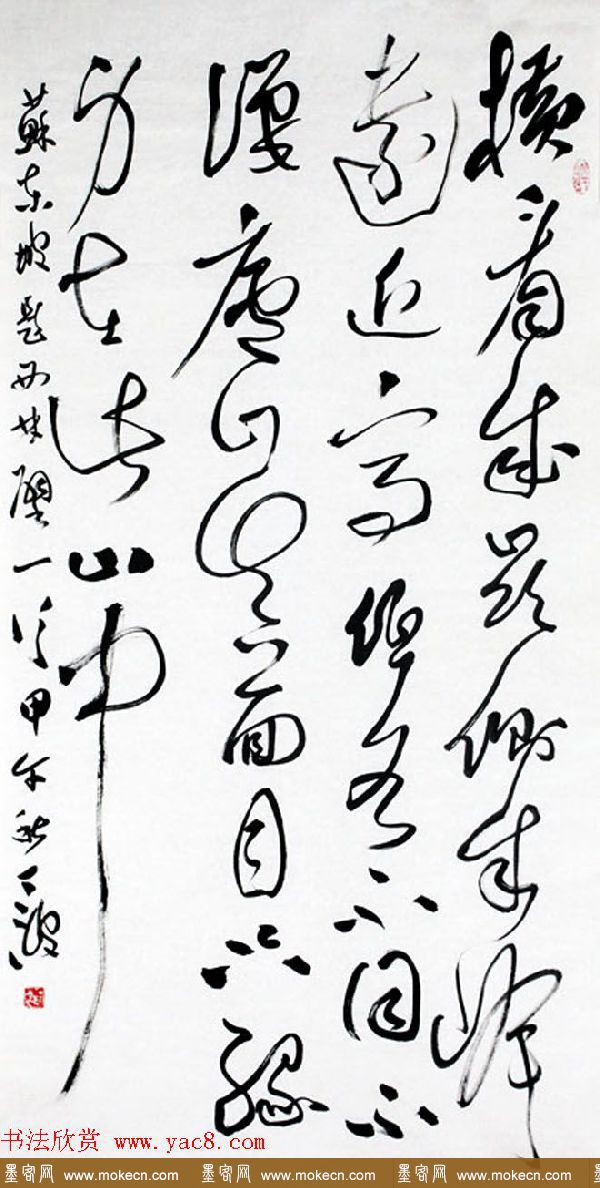 橫看成嶺側成峰
遠近高低各不同不
識廬山真面目只緣
身在此山中
蘇東坡題西林壁一甲午秋波
书法欣赏 www.yac8.com
墨客网 www.mokecn.com 墨客网 www.mokecn.com 墨客网 www.mokecn.com